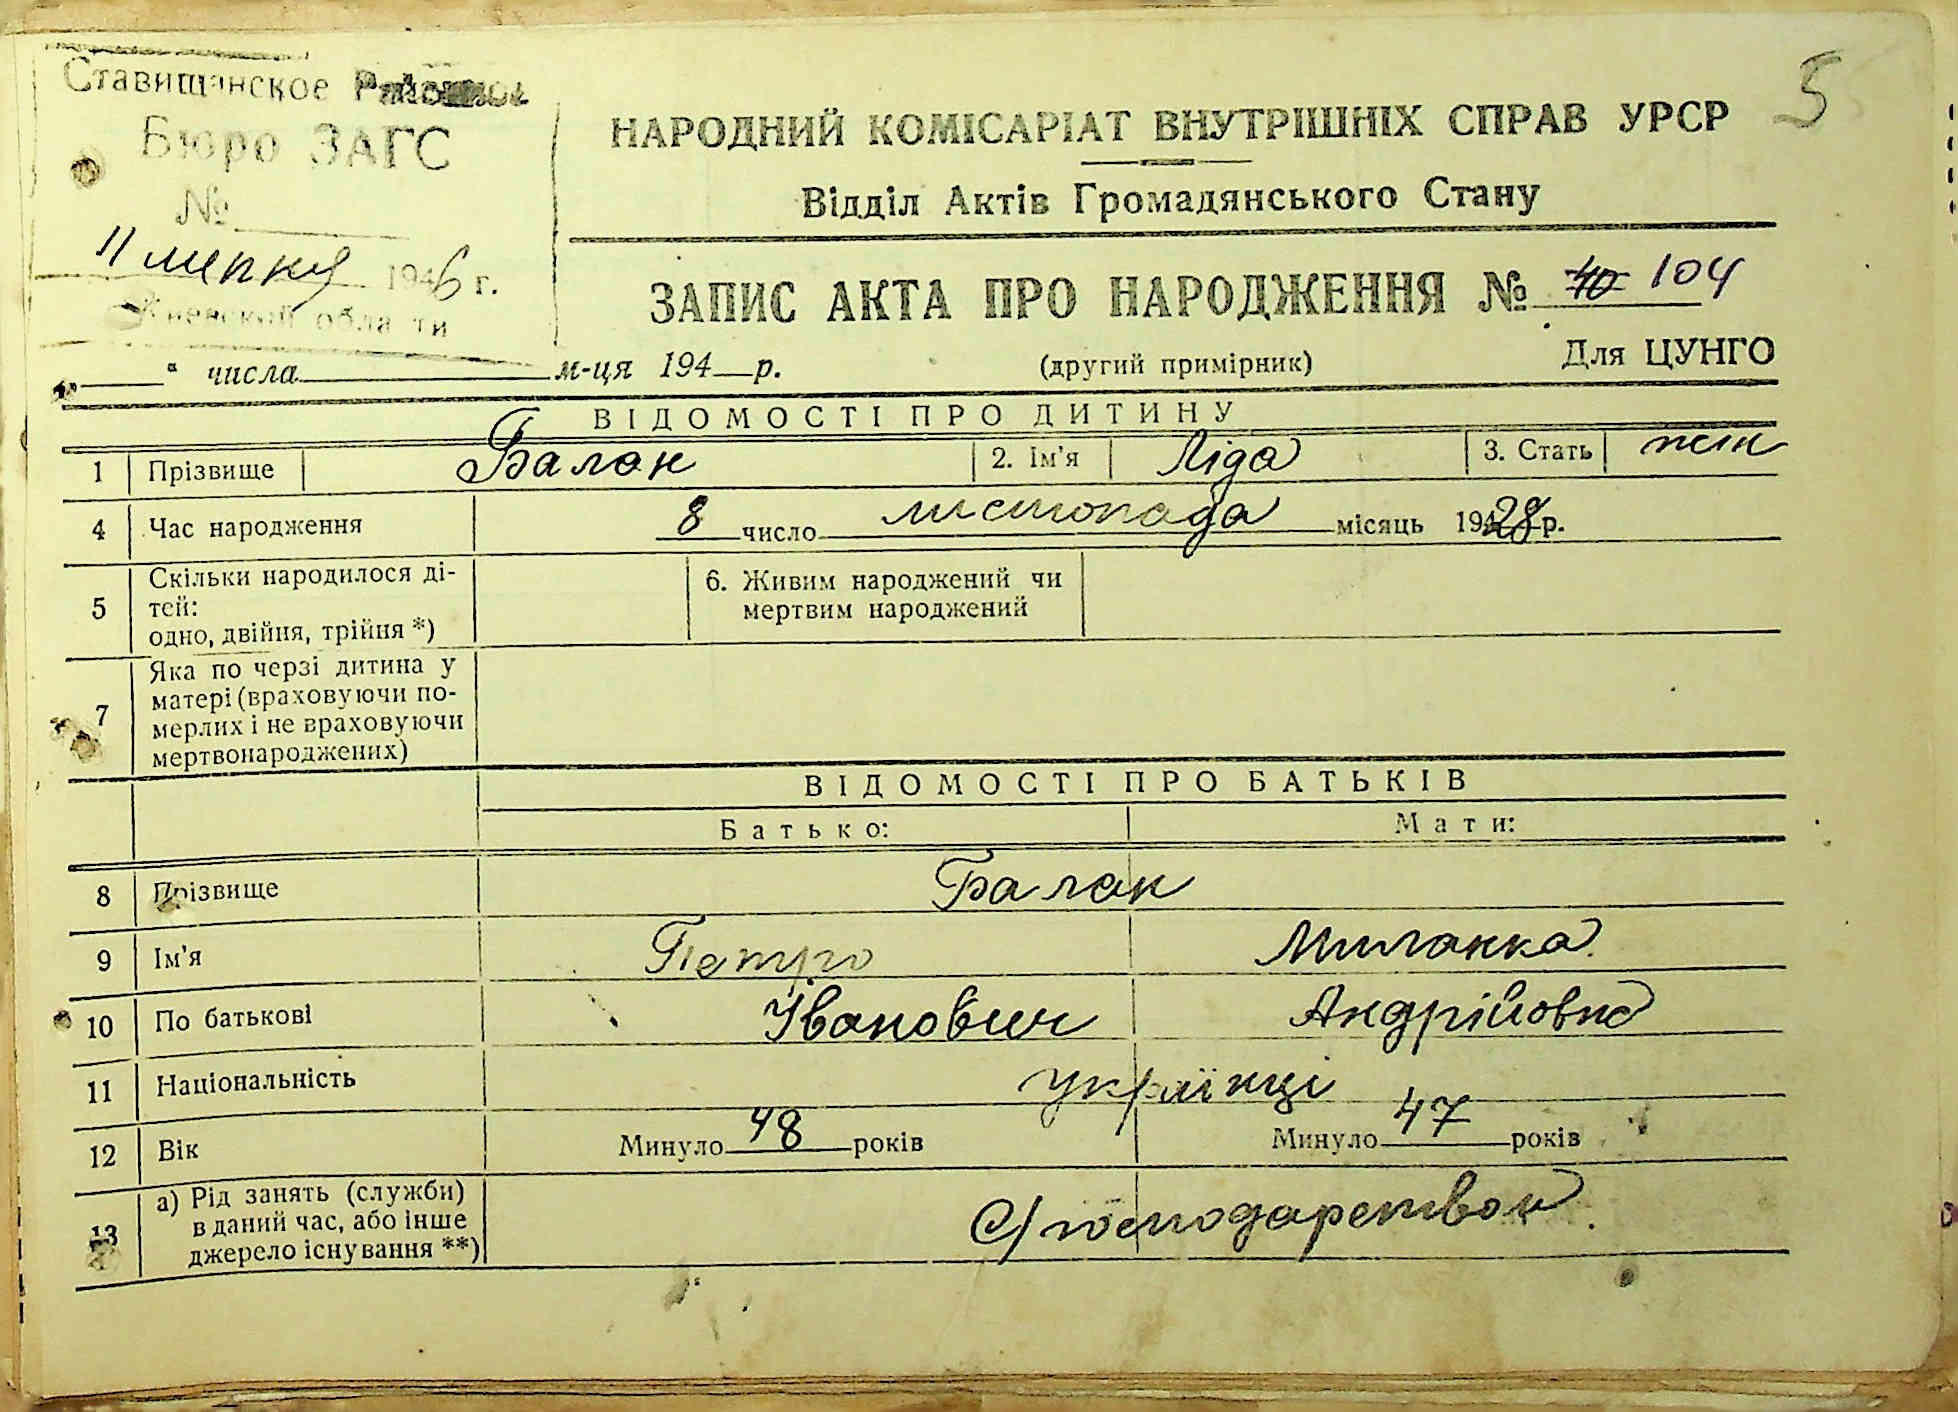 5
Ставищанское Районное
Бюро ЗАГС
№
11 липня 1946 г.
Киевской области
НАРОДНИЙ КОМІСАРІАТ ВНУТРІШНІХ СПРАВ УРСР
Відділ Актів Громадянського Стану
ЗАПИС АКТА ПРО НАРОДЖЕННЯ № 40 104
„ “ числа м-ця 194 р. (другий примірник) Для ЦУНГО
ВІДОМОСТІ ПРО ДИТИНУ
1 Прізвище Балан 2. Ім'я Ліда 3. Стать жін
4 Час народження 8 число листопада місяць 1928 р.
5 Скільки народилося ді-
тей:
одно, двійня, трійня *)
6. Живим народжений чи
мертвим народжений
7 Яка по черзі дитина у
матері (враховуючи по-
мерлих і не враховуючи
мертвонароджених)
ВІДОМОСТІ ПРО БАТЬКІВ
Батько: Мати:
8 Прізвище Балан
9 Ім'я Петро Миланка
10 По батькові Іванович Андрійовна
11 Національність українці
12 Вік Минуло 48 років Минуло 47 років
13 а) Рід занять (служби)
в даний час, або інше
джерело існування **)
С/господарством